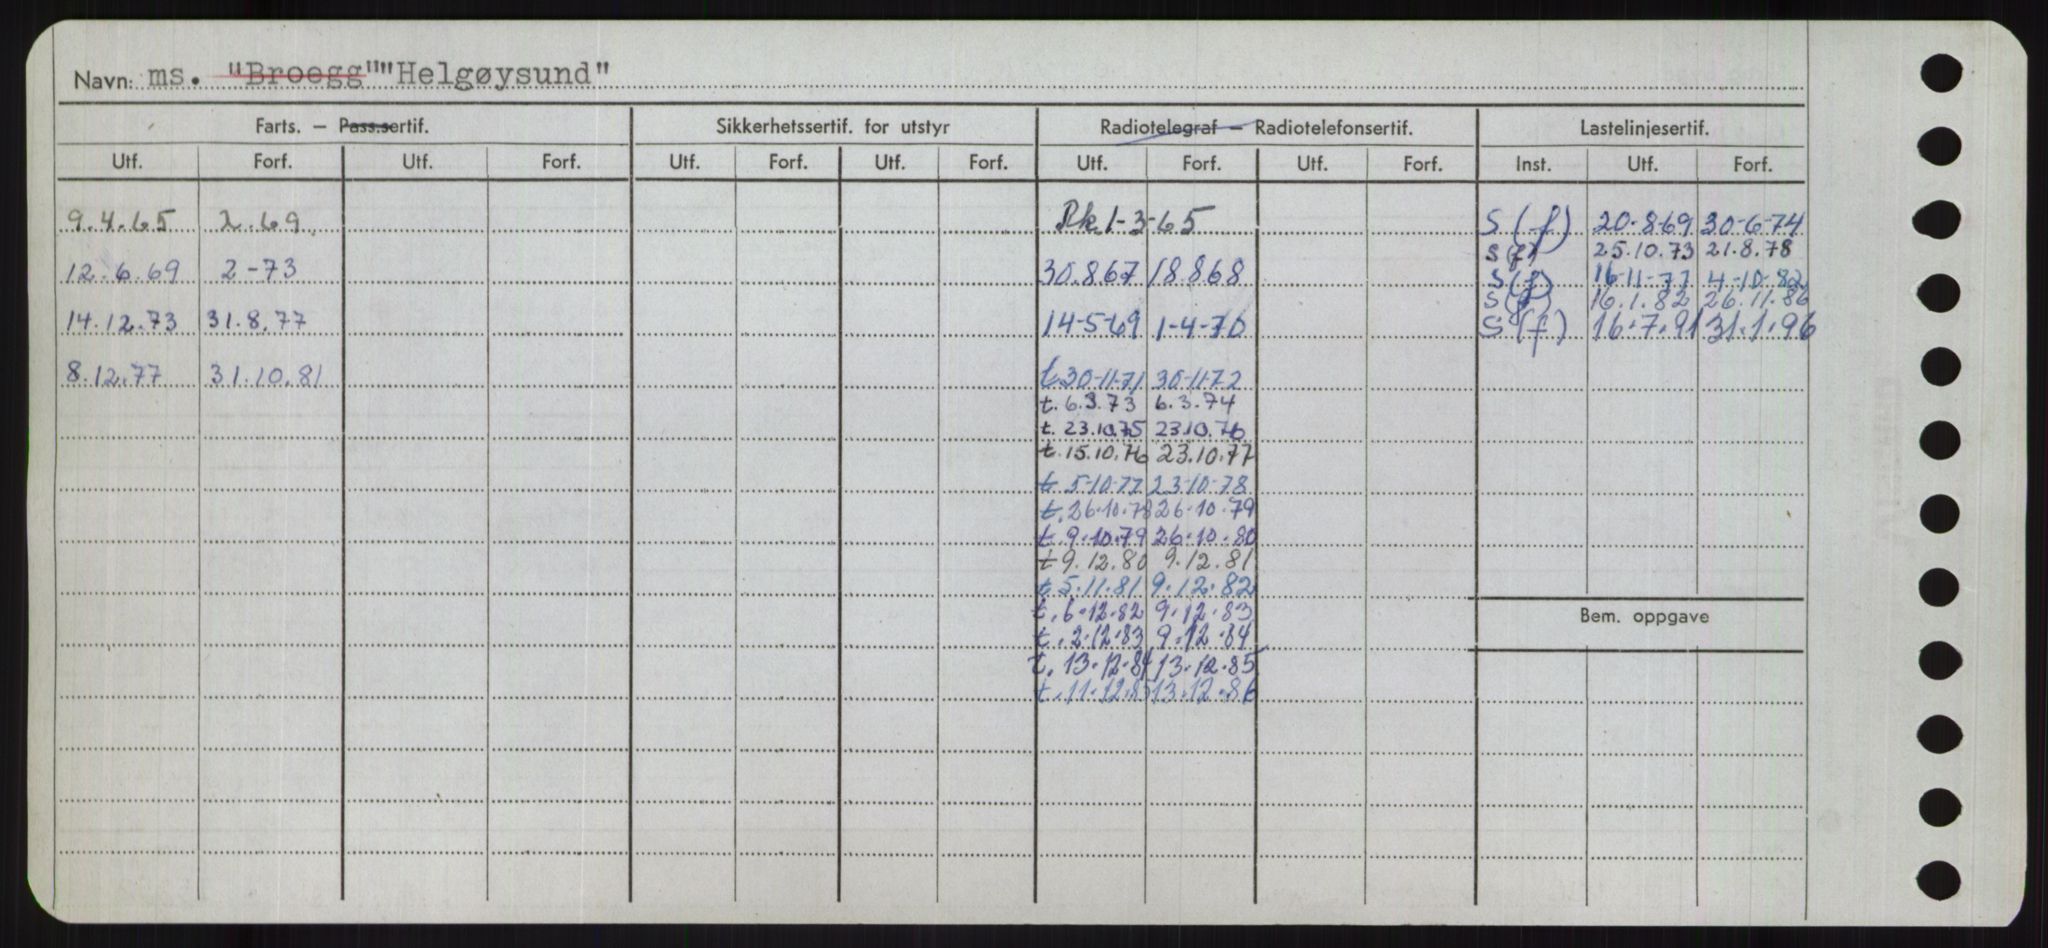 Navn: ms. "Broegg" "Helgøysund"
Farts. — Pass.sertif. Sikkerhetssertif. for utstyr Radiotelegraf — Radiotelefonsertif. Lastelinjesertif.
Utf. Forf. Utf. Forf. Utf. Forf. Utf. Forf. Utf. Forf. Utf. Forf. Inst. Utf. Forf.
9.4.65 2.69 Rk 1-3-65 S (f) 20-8-69 30-6-74
S (f) 25.10.73 21.8.78
12.6.69 2-73 30.8.67 18.8.68 S (f) 16-11-77 4-10-82
S (f) 16.1.82 26.11.86
14.12.73 31.8.77 14-5-69 1-4-70 S (f) 16.7.91 31.1.96
8.12.77 31.10.81 t. 30-11-71 30-11-72
t. 6.3.73 6.3.74
t. 23.10.75 23.10.76
t. 15.10.76 23.10.77
t. 5-10-77 23-10-78
t. 26.10.78 26.10.79
t. 9.10.79 26.10.80
t 9.12.80 9.12.81
t. 5.11.81 9.12.82
t. 6.12.82 9.12.83
t. 2.12.83 9.12.84
Bem. oppgave
t. 13.12.84 13.12.85
t. 11.12.85 13.12.86